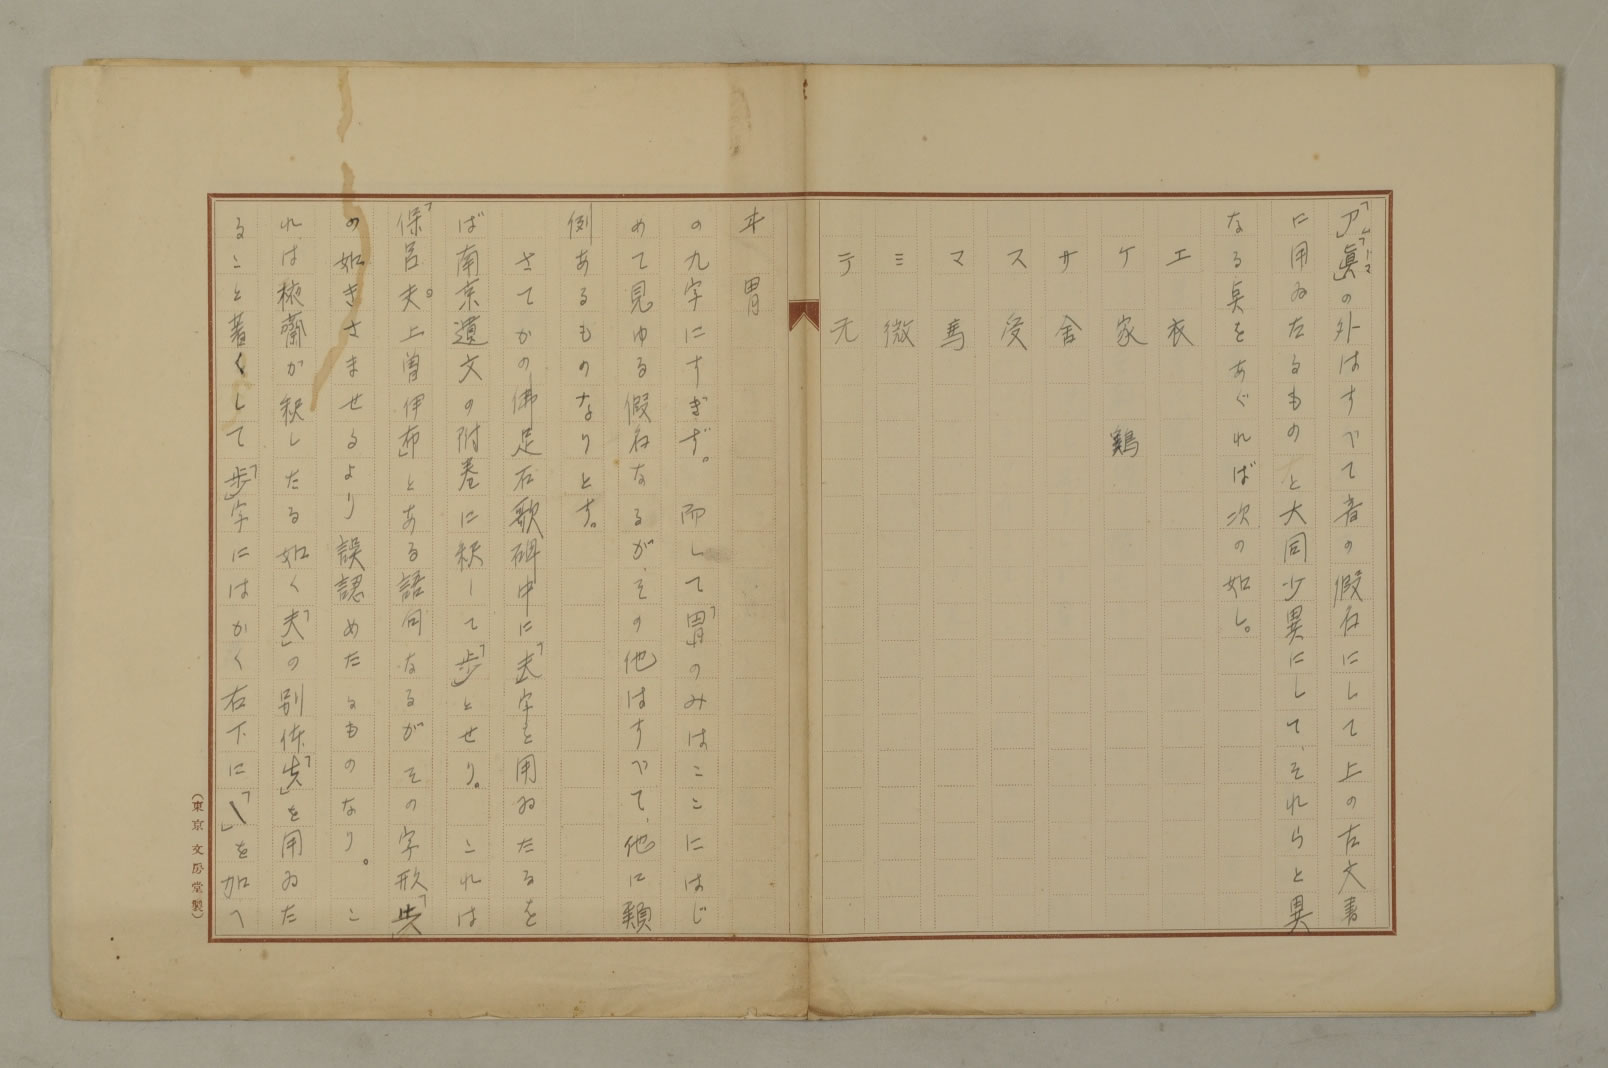 「ア」「眞」の外はすべて音の假名にして上の古文書
に用ゐたるものと大同少異にして、それらと異
なる点をあぐれば次の如し。
エ 衣
ケ 家 鷄
サ 舎
ス 受
マ 馬
ミ 微
テ 元
ヰ 胃
の九字にすぎず。而して「胃」のみはここにはじ
めて見ゆる假名なるが、その他はすべて、他に類
例あるものなりとす。
さてかの佛足石歌碑中に「夫」字を用ゐたるを
ば南京遺文の附巻に釈して「歩」とせり。これは
「保呂夫。上曽伊布」とある語句なるがその字形「𡗗」
の如きさませるより誤認めたるものなり。こ
れは棭齋が釈したる如く「夫」の別体「𡗗」を用ゐた
ること著くして「歩」字にはかく右下に「乀」を加へ
(東京文房堂製)